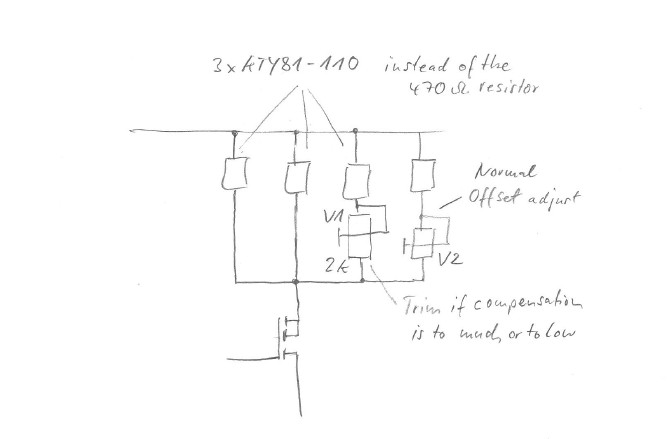 3xKTY81-110 instead of the
470 Ω resistor
Normal
Offset adjust
V1
2k
V2
Trim if compensation
is to much or to low